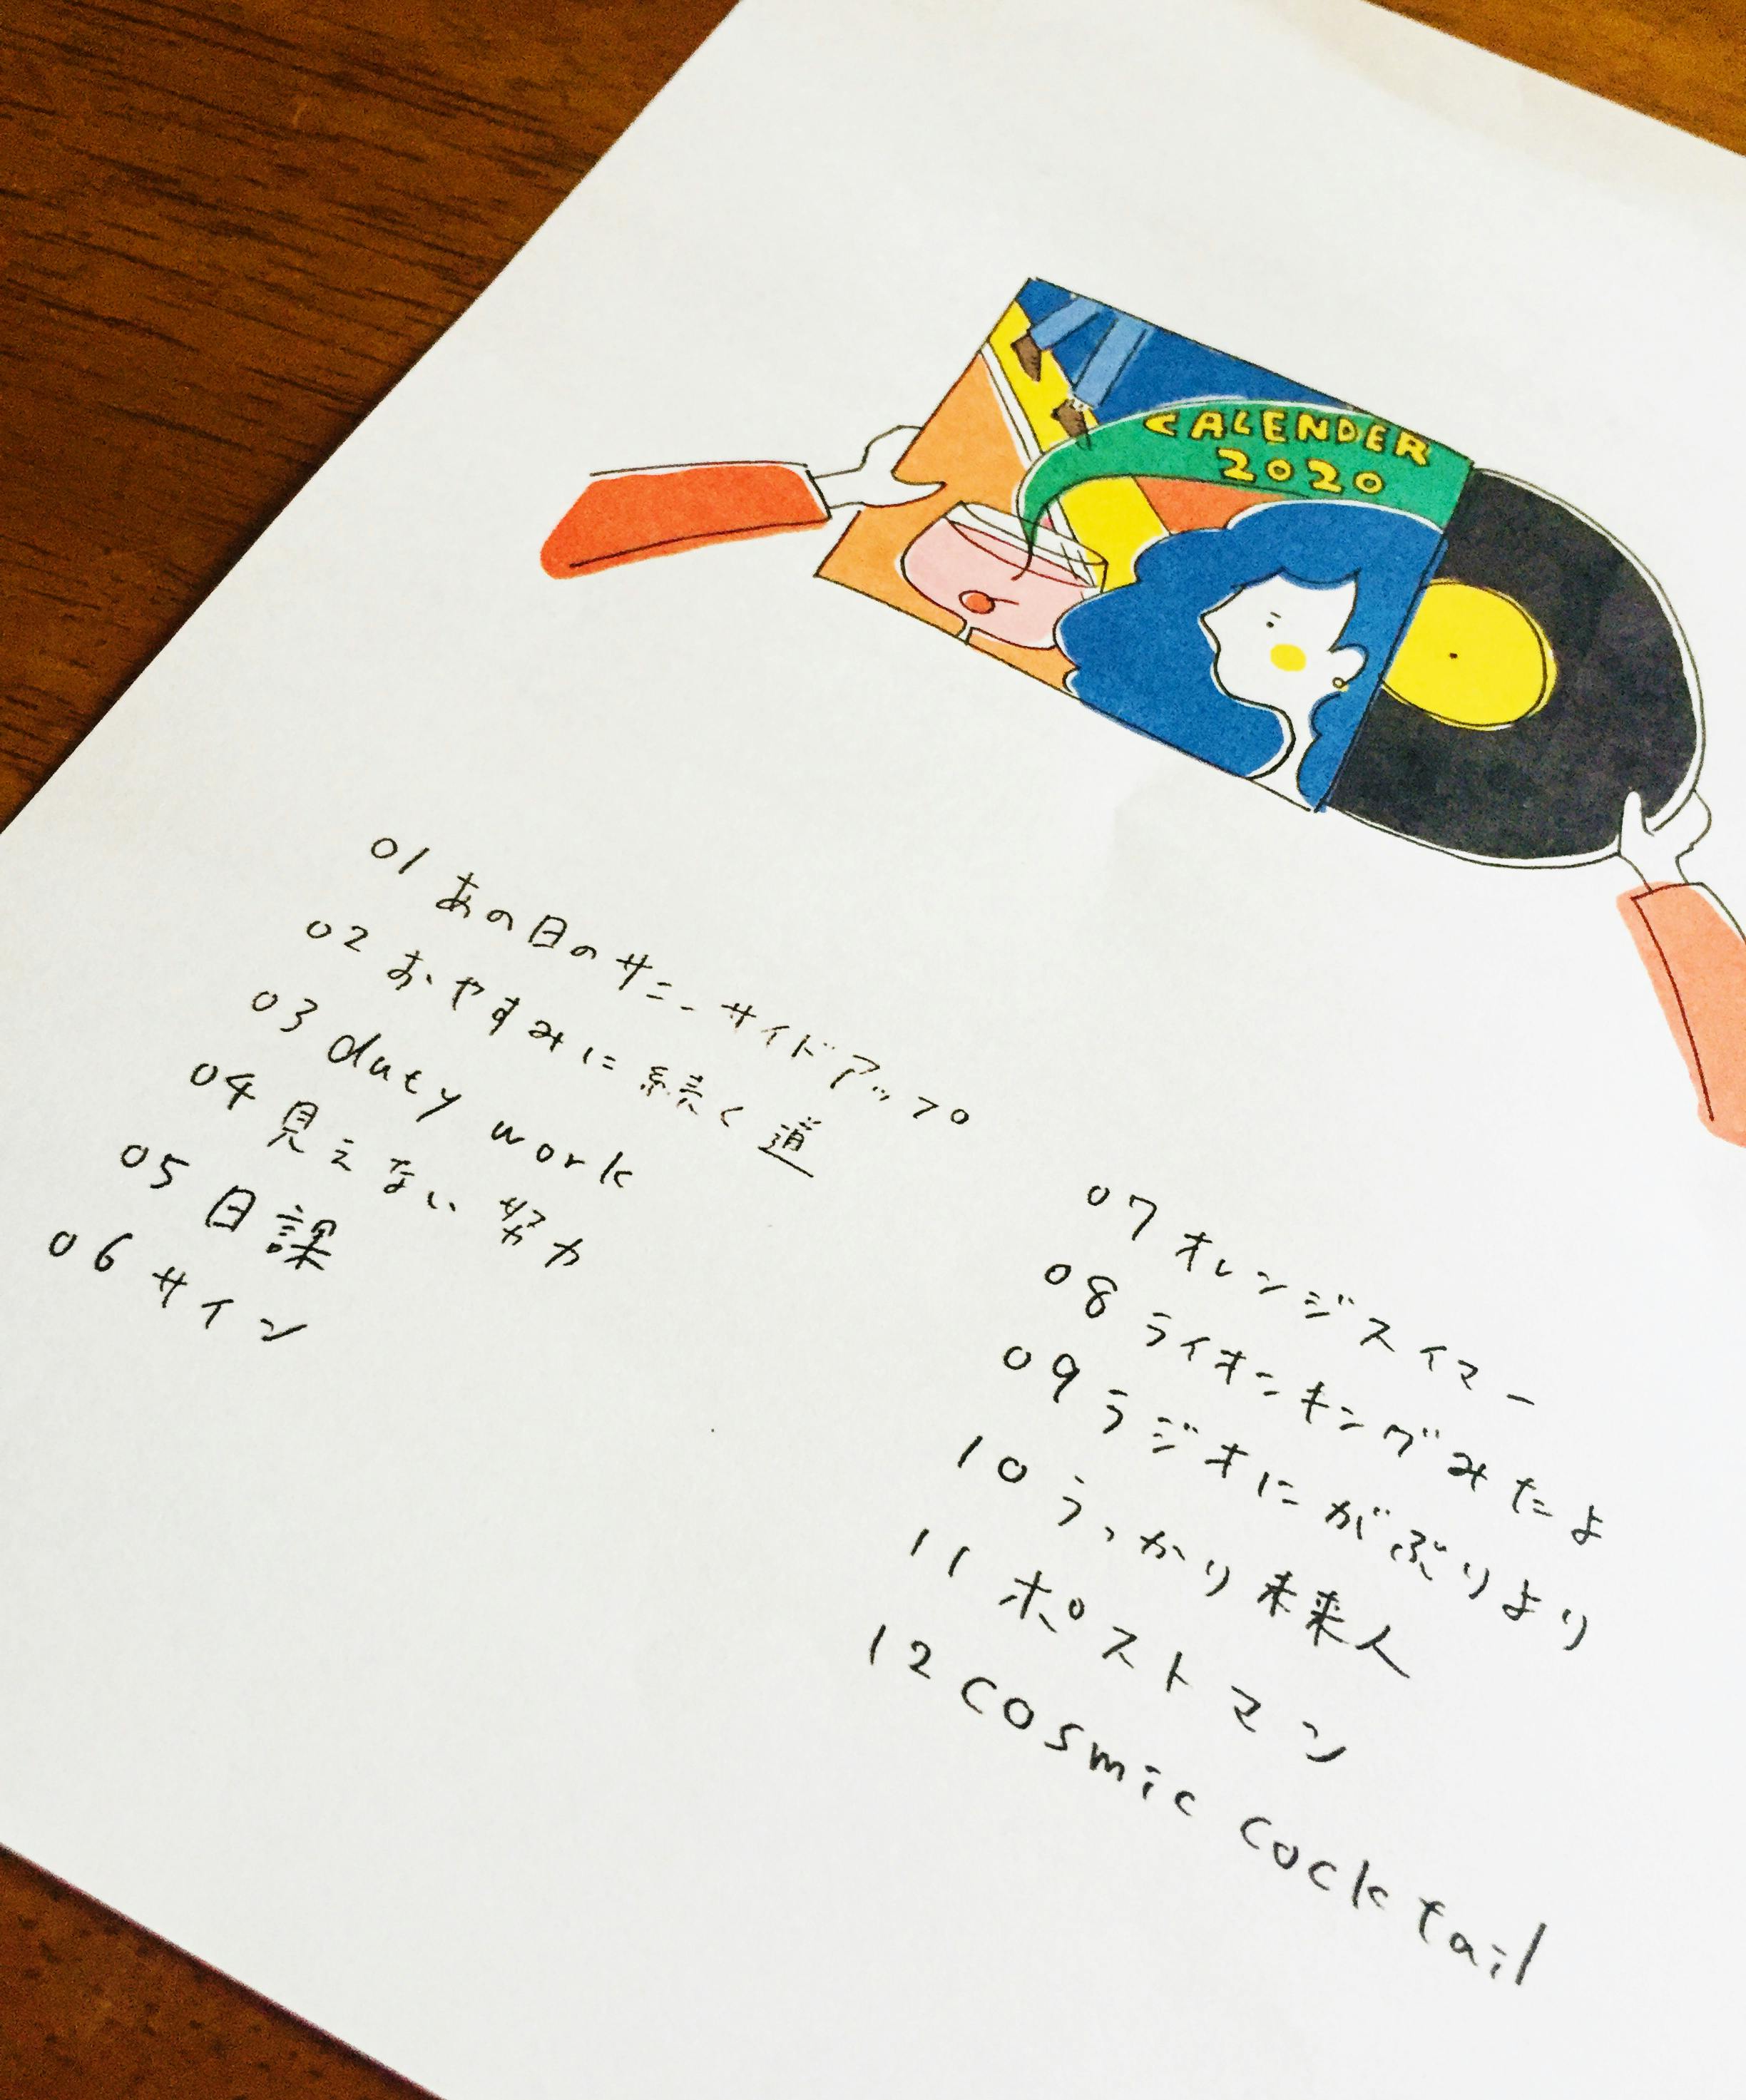 CALENDER
2020
01 あの日のサニーサイドアップ
02 おやすみに続く道
03 duty work
04 見えない努力
05 日課
06 サイン
07 オレンジスイマー
08 ライオンキングみたよ
09 ラジオにがぶりより
10 うっかり未来人
11 ポストマン
12 cosmic cocktail